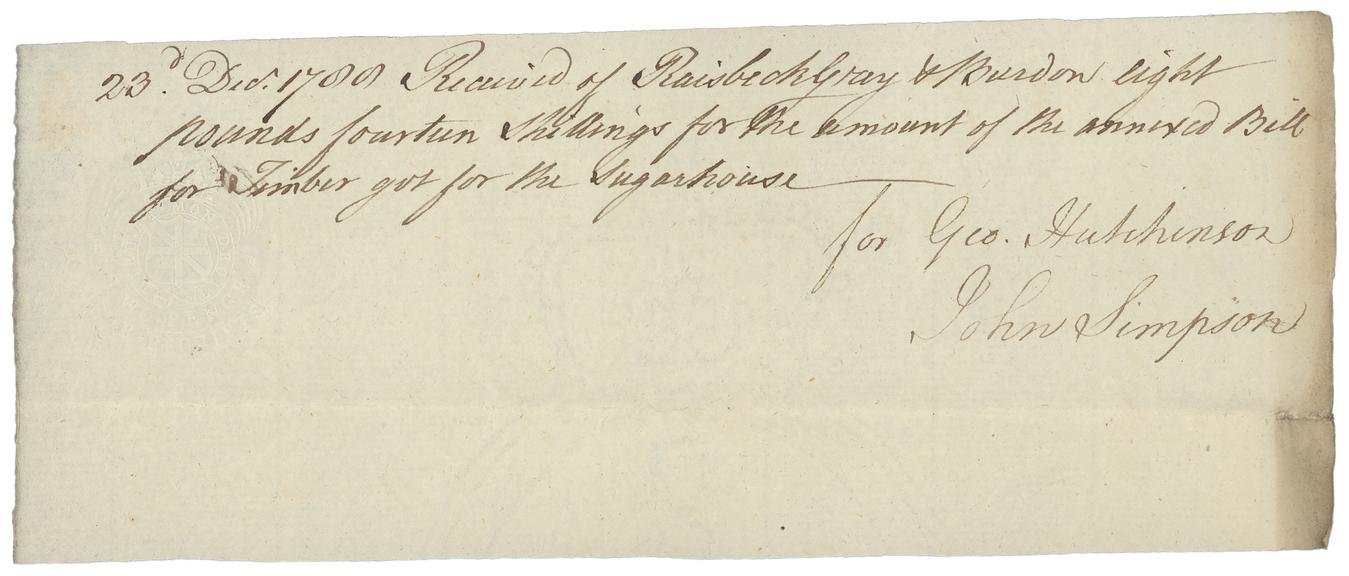 23d. Decr. 1788 Received of Raisbeck Gray & Burdon eight
pounds fourteen Shillings for the amount of the annexed Bill
for Timber got for the Sugarhouse
for Geo. Hutchinson
John Simpson